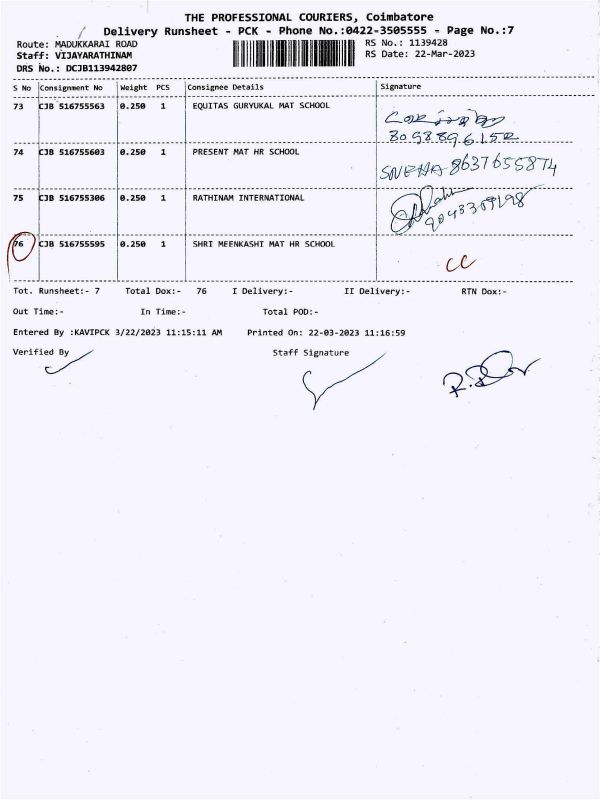 THE PROFESSIONAL COURIERS, Coimbatore
Delivery Runsheet - PCK - Phone No.:0422-3505555 - Page No.:7
Route: MADUKKARAI ROAD RS No.: 1139428
Staff: VIJAYARATHINAM RS Date: 22-Mar-2023
DRS No.: DCJB113942807
S No Consignment No Weight PCS Consignee Details Signature
73 CJB 516755563 0.250 1 EQUITAS GURYUKAL MAT SCHOOL
74 CJB 516755603 0.250 1 PRESENT MAT HR SCHOOL SNEHA-8637655874
75 CJB 516755306 0.250 1 RATHINAM INTERNATIONAL
76 CJB 516755595 0.250 1 SHRI MEENKASHI MAT HR SCHOOL CC
Tot. Runsheet:- 7 Total Dox:- 76 I Delivery:- II Delivery:- RTN Dox:-
Out Time:- In Time:- Total POD:-
Entered By :KAVIPCK 3/22/2023 11:15:11 AM Printed On: 22-03-2023 11:16:59
Verified By Staff Signature